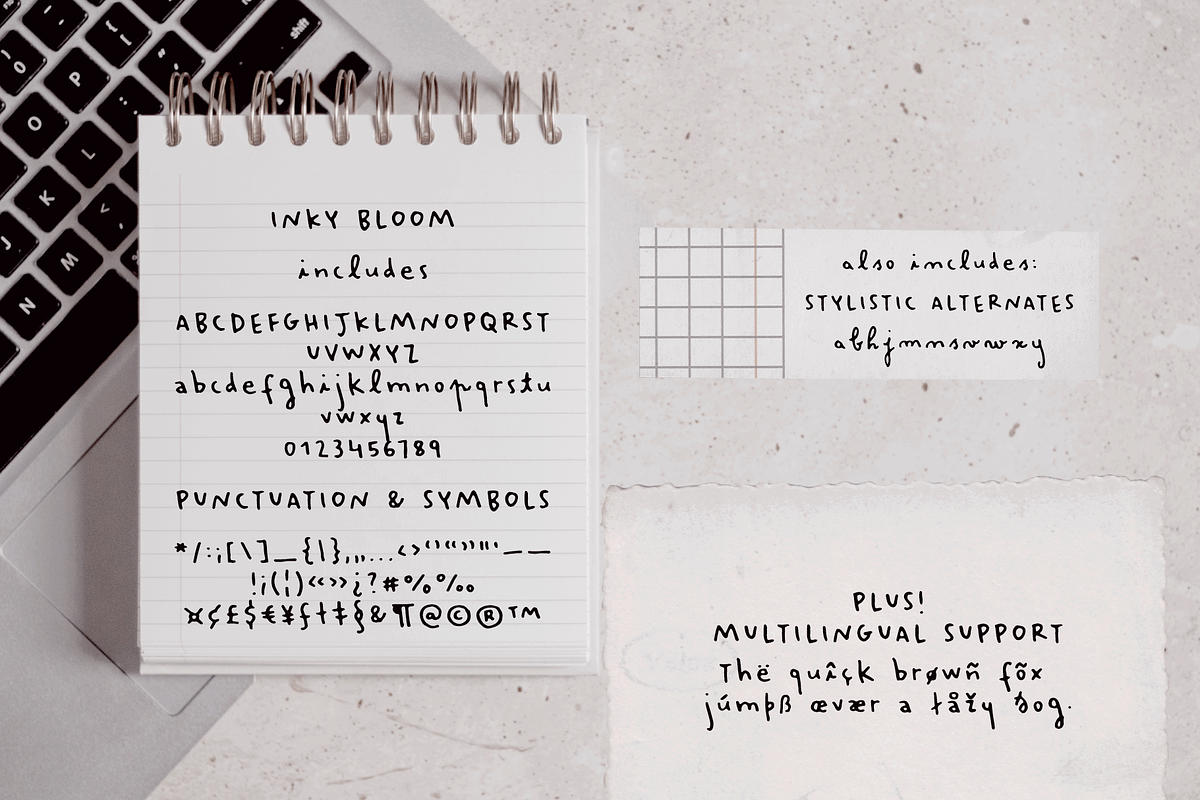 INKY BLOOM
includes
ABCDEFGHIJKLMNOPQRST
UVWXYZ
abcdefghijklmnopqrstu
vwxyz
0123456789
PUNCTUATION & SYMBOLS
*/:;[\]_{|},„…‹›‘’“”"'–—
!¡(¦)«»¿?#%‰
¤¢£$€¥ƒ†‡§&¶@©®™
also includes:
STYLISTIC ALTERNATES
abhjmnsvwxy
PLUS!
MULTILINGUAL SUPPORT
Thë quîçk brøwñ fõx
júmþß œvær a łåžy ðog.
shift
P
O
L
K
J
M
N